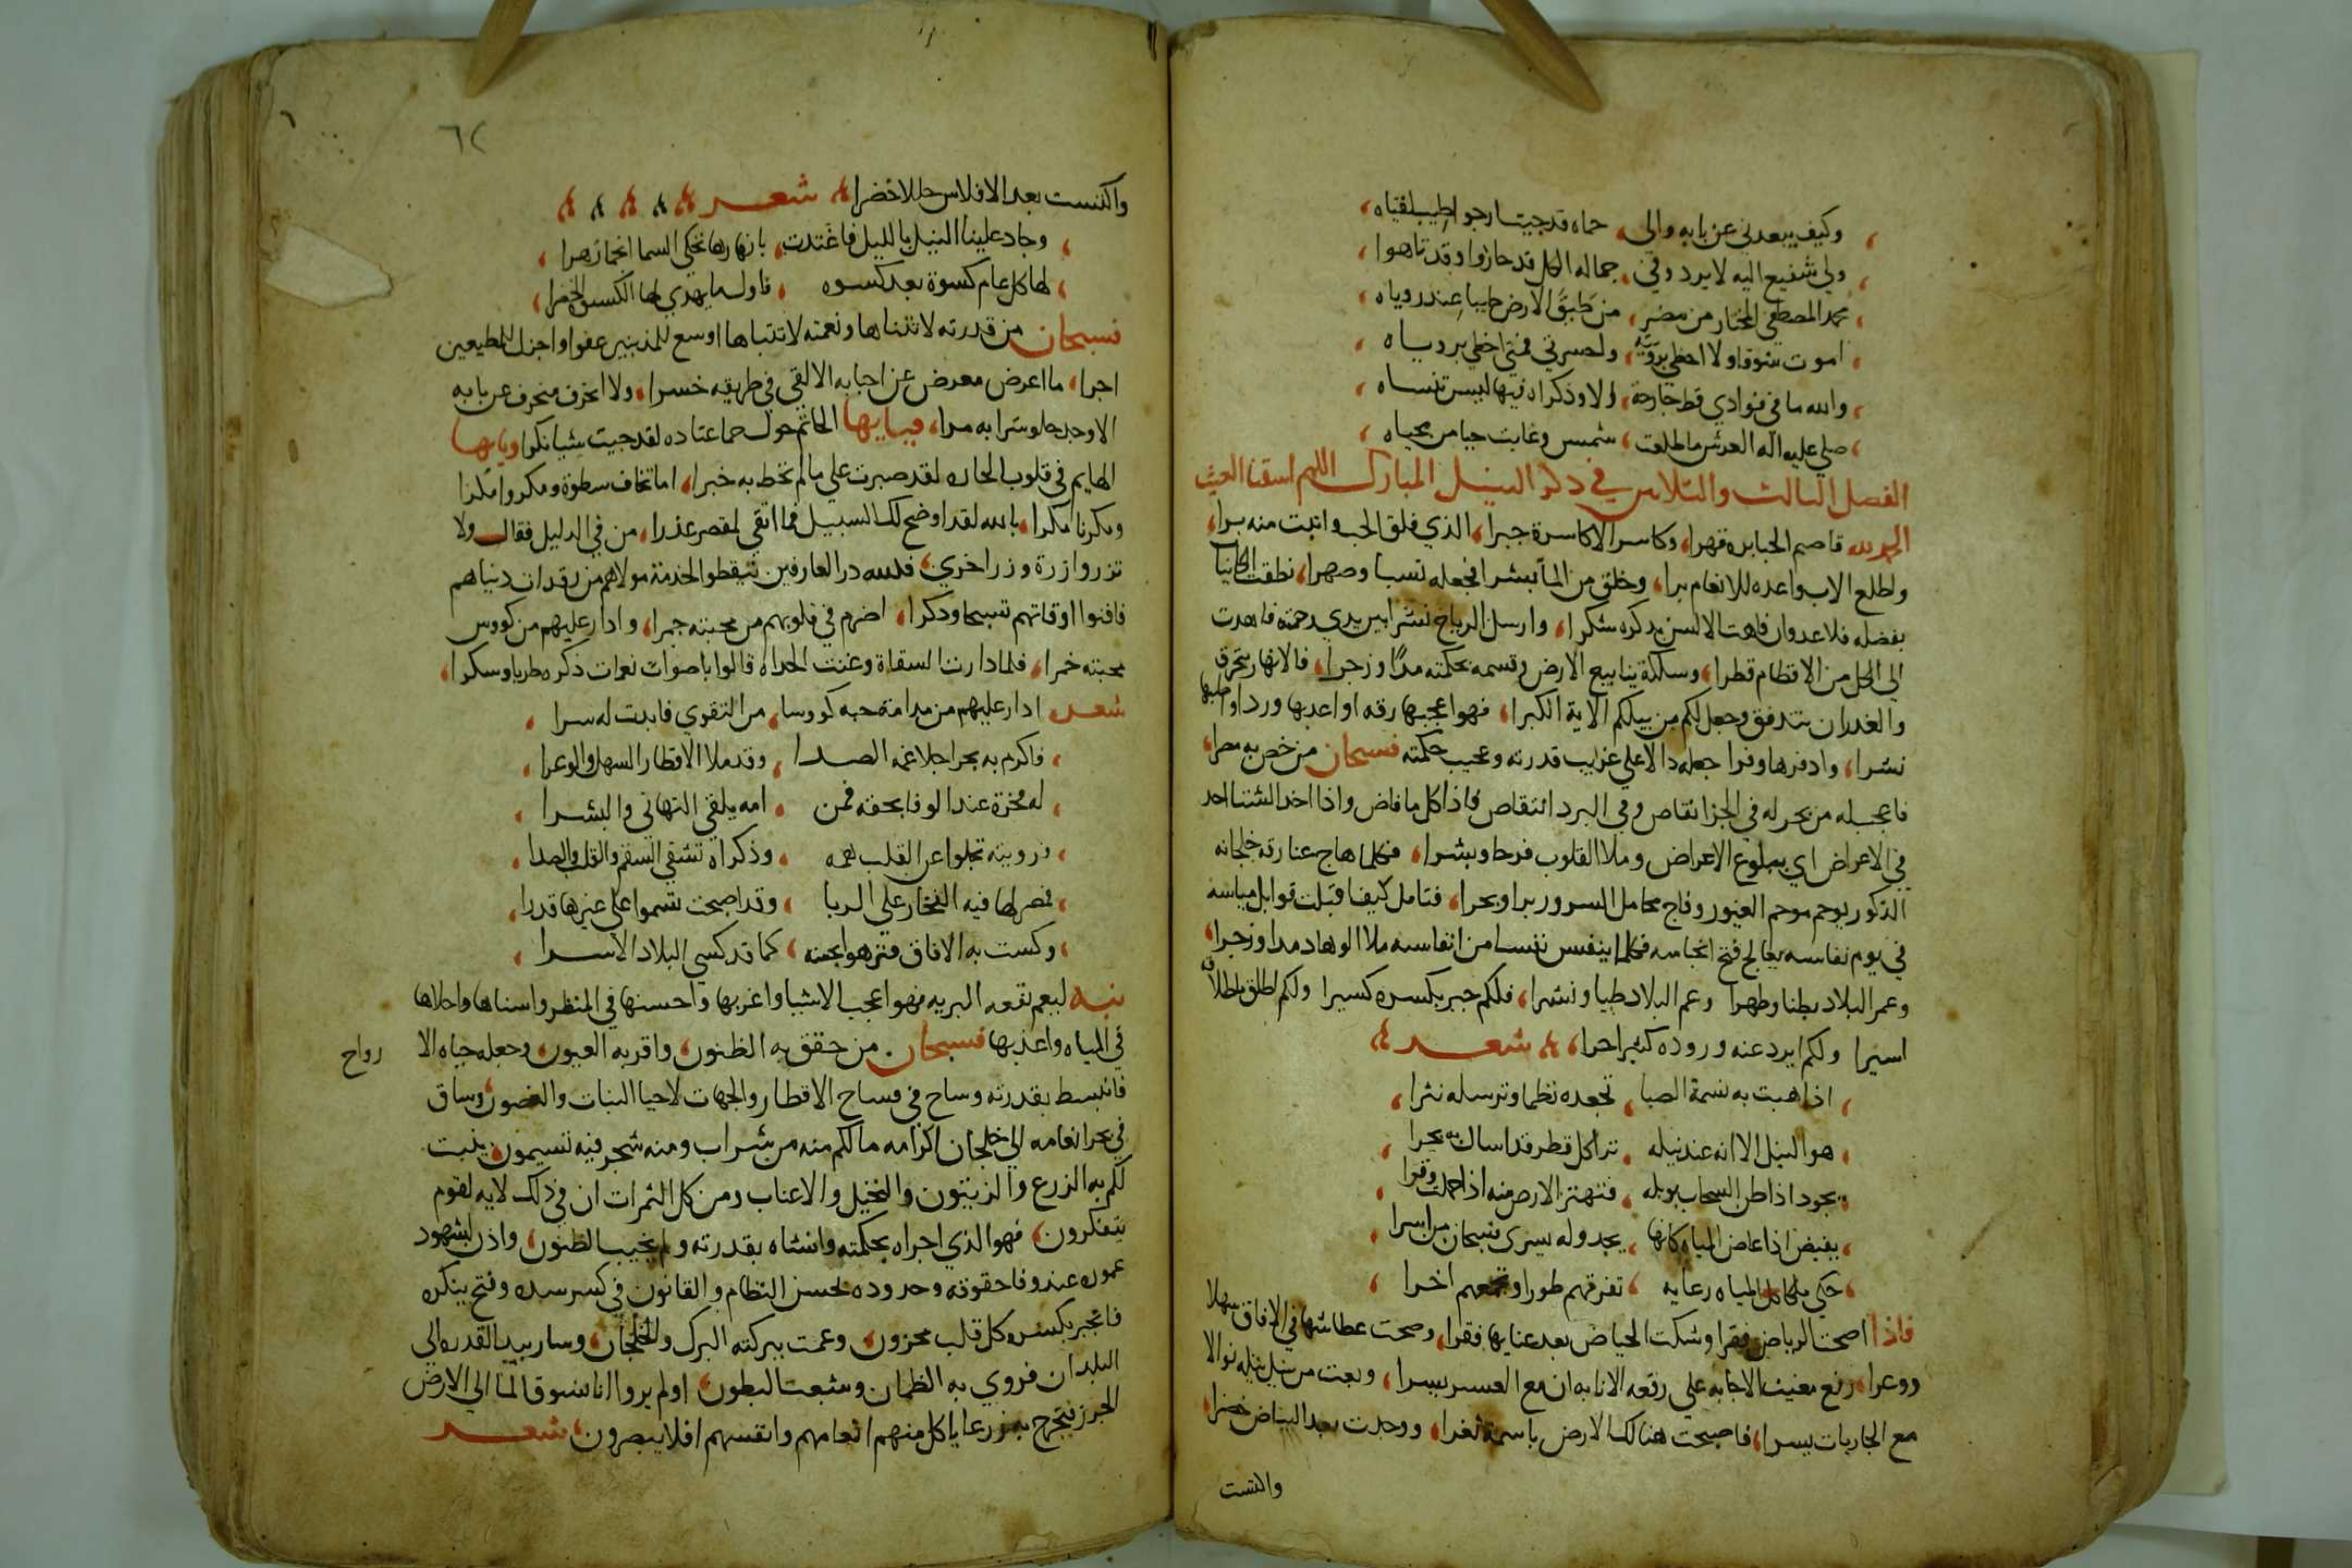 وكيف يبعدني عن بابه والى حماه قد جيت ارجوا طيب لقياه
ولي شفيع اليه لا يرد وفي جماله الكل قد حاروا وقد تاهوا
محمد المصطفي المختار من مضر من طبق الارض طيبا عند رؤياه
اموت شوقا ولا احظي برؤيته واحسرتي فمتي احظي برؤياه
والله ما في فوادي قط جارحة الا وذكراه فيها ليس تنساه
صلي عليه اله العرش ما طلعت شمس وغابت حيا من محياه
الفصل الثالث والثلاثين في ذكر النيل المبارك اللهم اسقنا الغيث
الحمد لله قاصم الجبابرة قهرا وكاسر الاكاسرة جبرا الذي فلق الحب وانبت منه برا
واطلع الاب واعده للانعام برا وخلق من الماء بشرا فجعله نسبا وصهرا نطقت الكاينات
بفضله فلا عدوان فاهت الالسن بذكره شكرا وارسل الرياح نشرا بين يدي رحمته فاهدت
الى المحل من الاقطام قطرا وسلكه ينابيع الارض وقسمه بحكمته مدا وزجرا فالانهار تخرق
والغدران تتدفق وجعل لكم من نيلكم الاية الكبرا فهو اعجبها رقه واعذبها وردا واطيبها
نشرا واوفرها وفرا جعله دالا علي غرايب قدرته وعجيب حكمته فسبحان من خص به مصرا
فاعجب له من بحر له في الجزا نقاص وفي البرد انتقاص فاذا كل ما فاض واذا اخذ الشتا اخذ
في الاعراض اي ببلوغ الاعراض وملا القلوب فرحا وبشرا فكلما هاج عنا رقه خلجانه
الذكور يوحم موحم العيور وفاج محامل السرور برا وبحرا فتامل كيف اقبلت قوابل مياسه
في يوم نفاسه يعالج فتح انحاسه فكلما ينفس نفسا من انفاسه ملا الوهاد مدا وزجرا
وعمر البلاد بطنا وظهرا وعم البلاد طيبا ونشرا فلكم جبر بكسره كسيرا ولكم اطلق باطلاقه
اسيرا ولكم ابرد عنه وروده كبدا حرا شعر
اذا هبت به نسمة الصبا تجعده نظما وترسله نثرا
هو النيل الا انه عند نيله ترا كل قطر قد اسال به بحرا
يجود اذا ظن السحاب بوبله فتهتز الارض منه اذا حملت وقرا
يفيض اذا غاض المياه كانها يجد وله يسرى فسبحان من اسرا
حكي ملكا كل المياه رعايه تفرقهم طورا وتجمعهم اخرا
فاذا اصبحت الرياض فقرا وشكت الحياض بعد غنايها فقرا وصحت عطاشها في الافاق سهلا
ووعرا رفع مغيث الاجابه علي رقعه الانابه ان مع العسر يسرا وبعث من نيل نيله نوالا
مع الجاريات يسرا فاصبحت هنالك الارض باسمة ثغرا ووجدت بعد البياض خضرا
واكتست
٦٢
واكتست بعد الافلاس حللا خضرا شعر
وجاد علينا النيل بالليل فاغتدت بانهارها تحكي السما انجما زهرا
لها كل عام كسوة بعد كسوه فاول ما يهدي لها الكسوة الخضرا
فسبحان من قدرته لا تتناها ونعمته لا تتباها اوسع للمذنبين عفوا واجزل للمطيعين
اجرا ما اعرض معرض عن اجابه الا لقي في طريقه خسرا ولا انحرف منحرف عن بابه
الا وجد حلو شرابه مرا فيايها الحائم حول حما عتاده لقد جيت شيا نكرا ويايها
الهايم في قلوب الحاره لقد صبرت علي ما لم تحط به خبرا اما تخاف سطوة ومكروا مكرا
ومكرنا مكرا بالله لقد اوضح لك السبيل فما ابقي لمقصر عذرا من في الدليل فقال ولا
تزر وازرة وزر اخري فلله در العارفين تيقظوا لخدمة مولاهم من رقدات دنياهم
فافنوا اوقاتهم تسبيحا وذكرا اضرم في قلوبهم من محبته جمرا وادار عليهم من كووس
محبته خمرا فلما دارت السقاة وغنت الحداه قالوا باصوات نغمات ذكره طربا وسكرا
شعر ادار عليهم من مدامة حبه كووسا من التقوي فابدت له سرا
فاكرم به بحرا جلا غمه الصدا وقد ملا الاقطار السهل والوعرا
له مخزة عند الوفا بحقه فمن امه يلقي التهاني والبشرا
ورويته تجلوا عن القلب همه وذكراه تشفي السقم والقلب والصدا
فمصر لها فيه الفخار علي الربا وقد اصبحت تسموا علي غيرها قدرا
وكست به الافاق فتزهوا بحسنه كما قد كسي البلاد الاسرا
نبه ليعم نفعه البريه فهو اعجب الاشيا واغربها واحسنها في المنظر واسناها واحلاها
في المياه واعذبها فسبحان من حقق به الظنون واقر به العيون وجعله حياه الا
رواح
فانبسط بقدرته وساح في فساح الاقطار والجهات لاحيا النبات والغصون وساق
في بحر انعامه الي خلجان اكرامه ما لكم منه من شراب ومنه شجر فيه تسيمون ينبت
لكم به الزرع والزيتون والنخيل والاعناب ومن كل الثمرات ان في ذلك لايه لقوم
يتفكرون فهو الذي اجراه بحكمته وانشاه بقدرته ولم يخيب الظنون واذن لشهود
عموده عند وفا حقوقه وحدوده لحسن النظام والقانون في كسر سده وفتح بنكره
فانجبر بكسره كل قلب محزون وعمت ببركته البرك والخلجان وسار بيد القدره الي
البلدان فروي به الظمان وشبعت البطون اولم يروا انا نسوق الما الي الارض
الجرز فنخرج به زرعا ياكل منهم انعامهم وانفسهم افلا يبصرون شعر